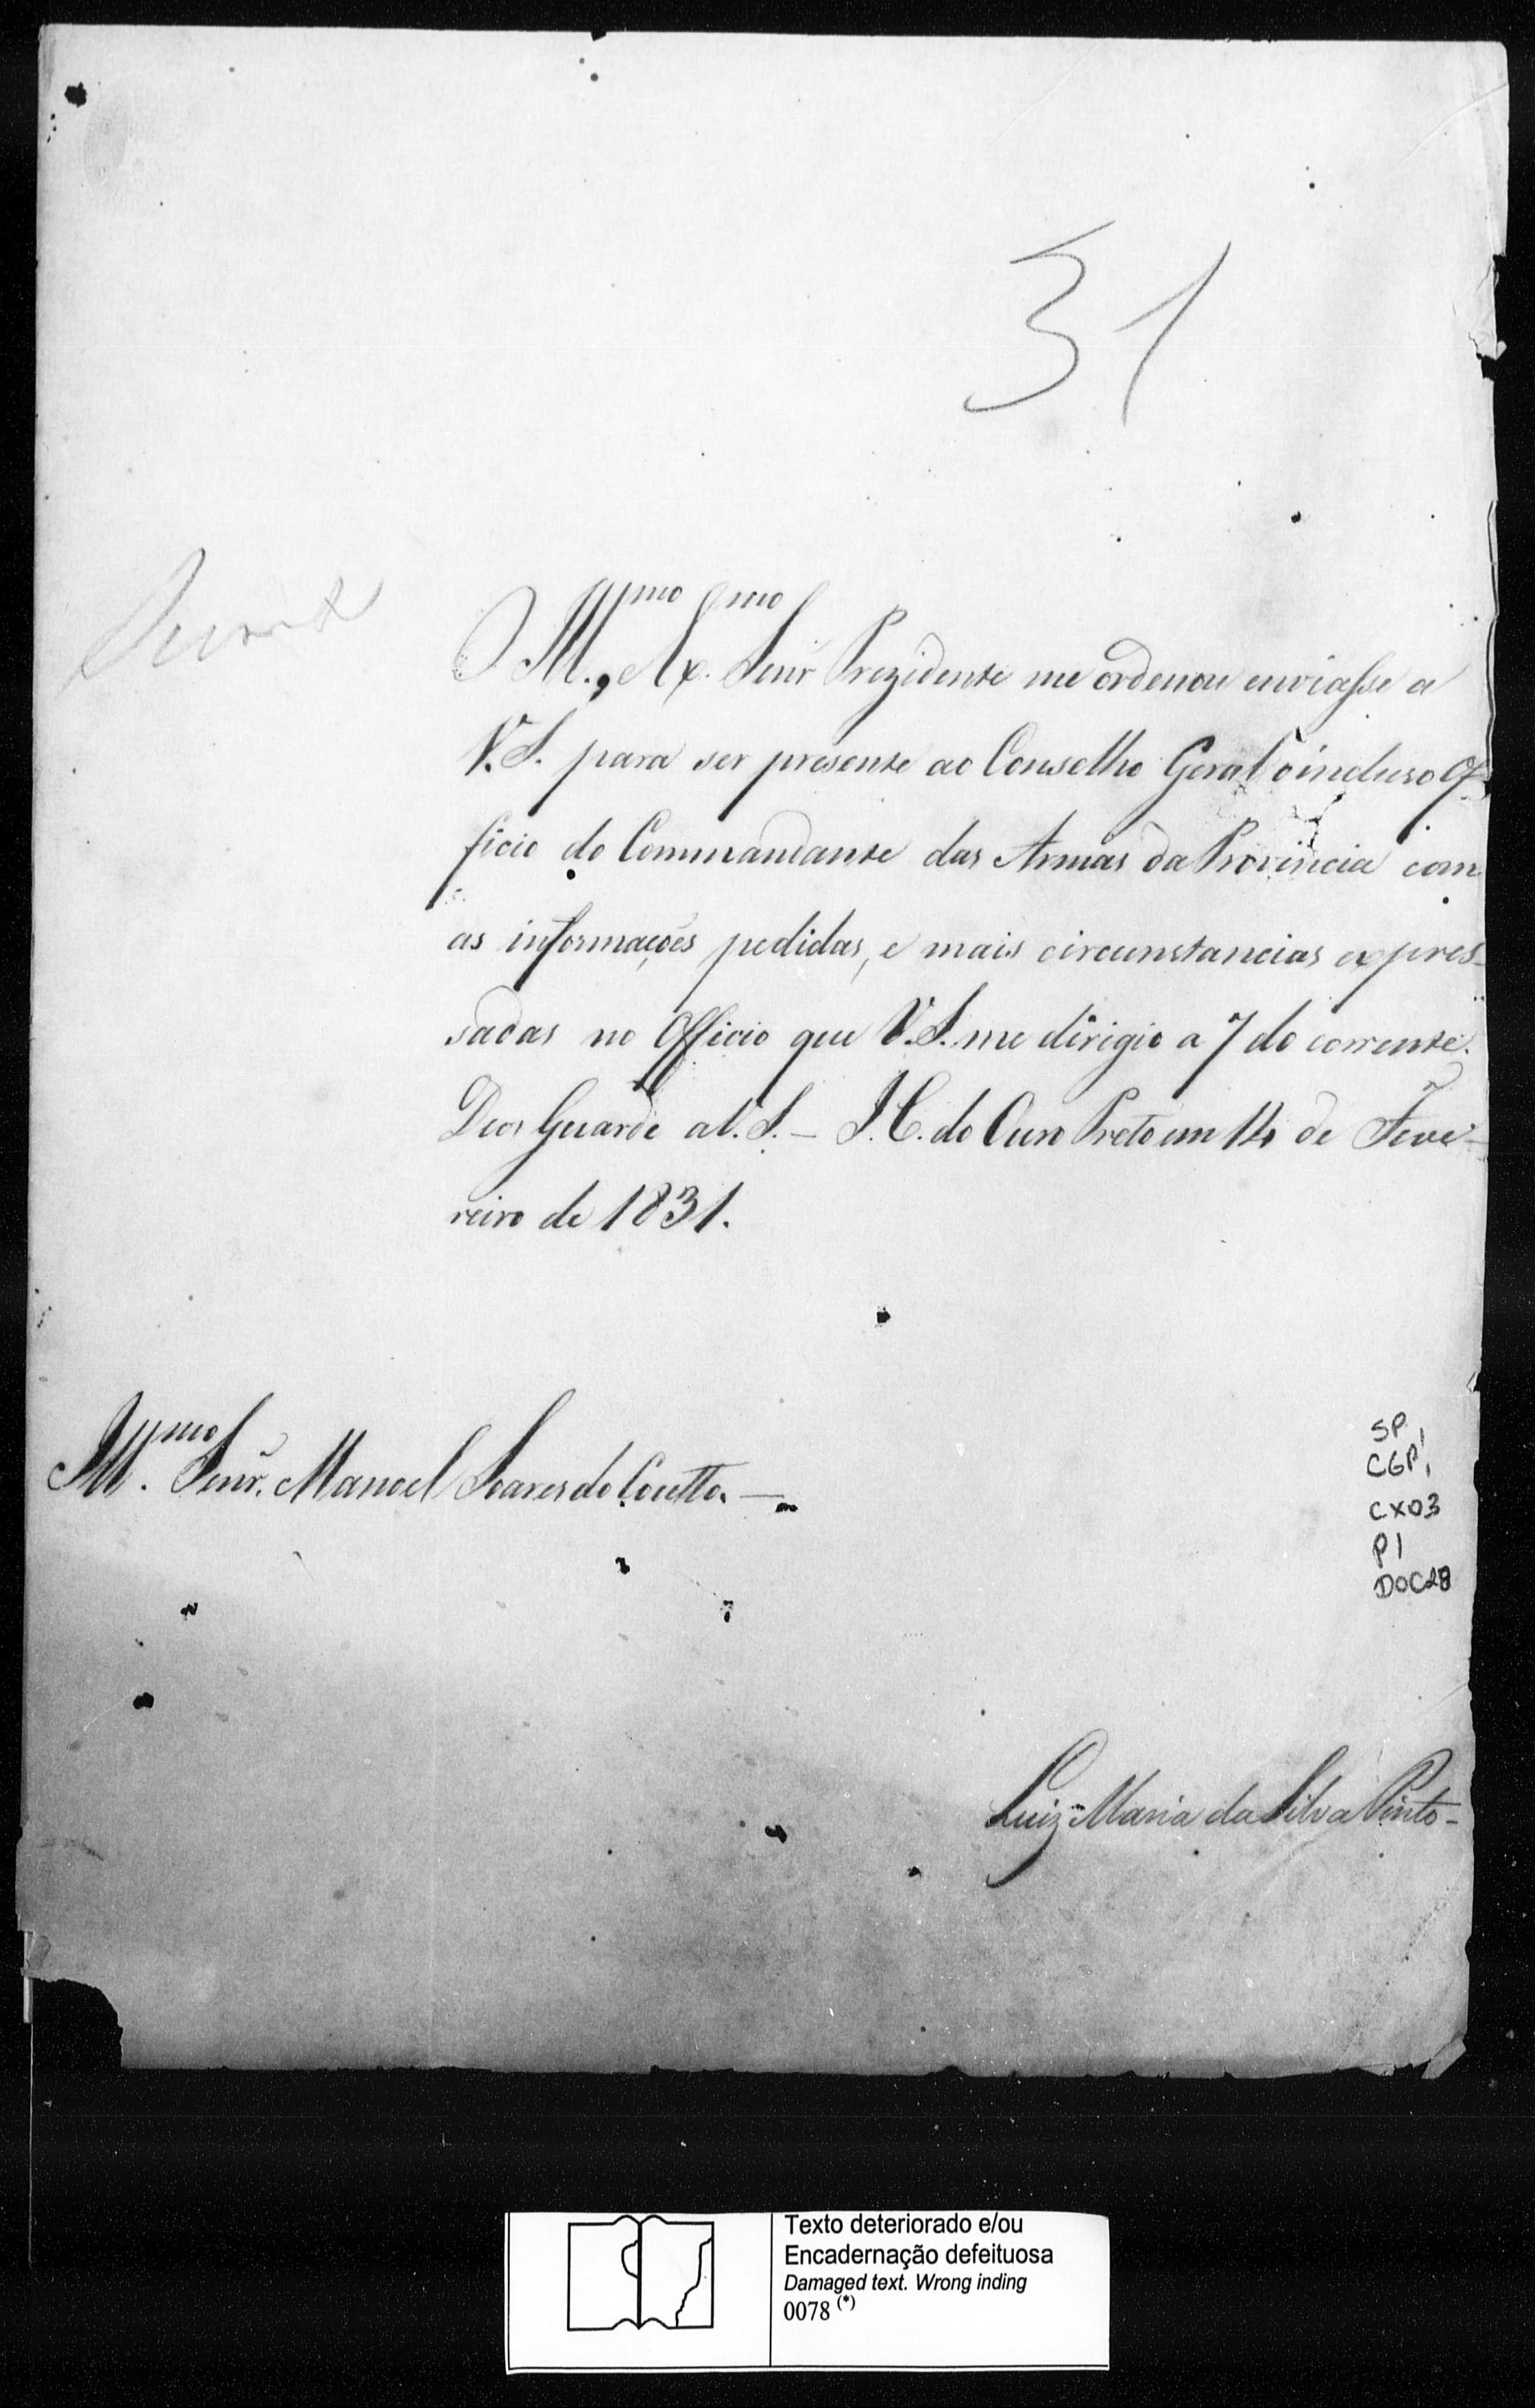 31
O Ill.mo, e Ex.mo Senr̃ Prezidente me ordenou enviasse a
V. S. para ser presente ao Conselho Geral o incluso Of-
ficio do Commandante das Armas da Provincia com
as informações pedidas, e mais circunstancias expres-
sadas no Officio que V. S. me dirigio a 7 do corrente.
Deos Guarde a V. S. – I. C. do Ouro Preto em 14 de Feve-
reiro de 1831.
Ill.mo Senr̃. Manoel Soares do Coutto. —
SP,
CGP1,
CX03
P1
DOC28
Luiz Maria da Silva Pinto -
Texto deteriorado e/ou
Encadernação defeituosa
Damaged text. Wrong inding
0078 (*)